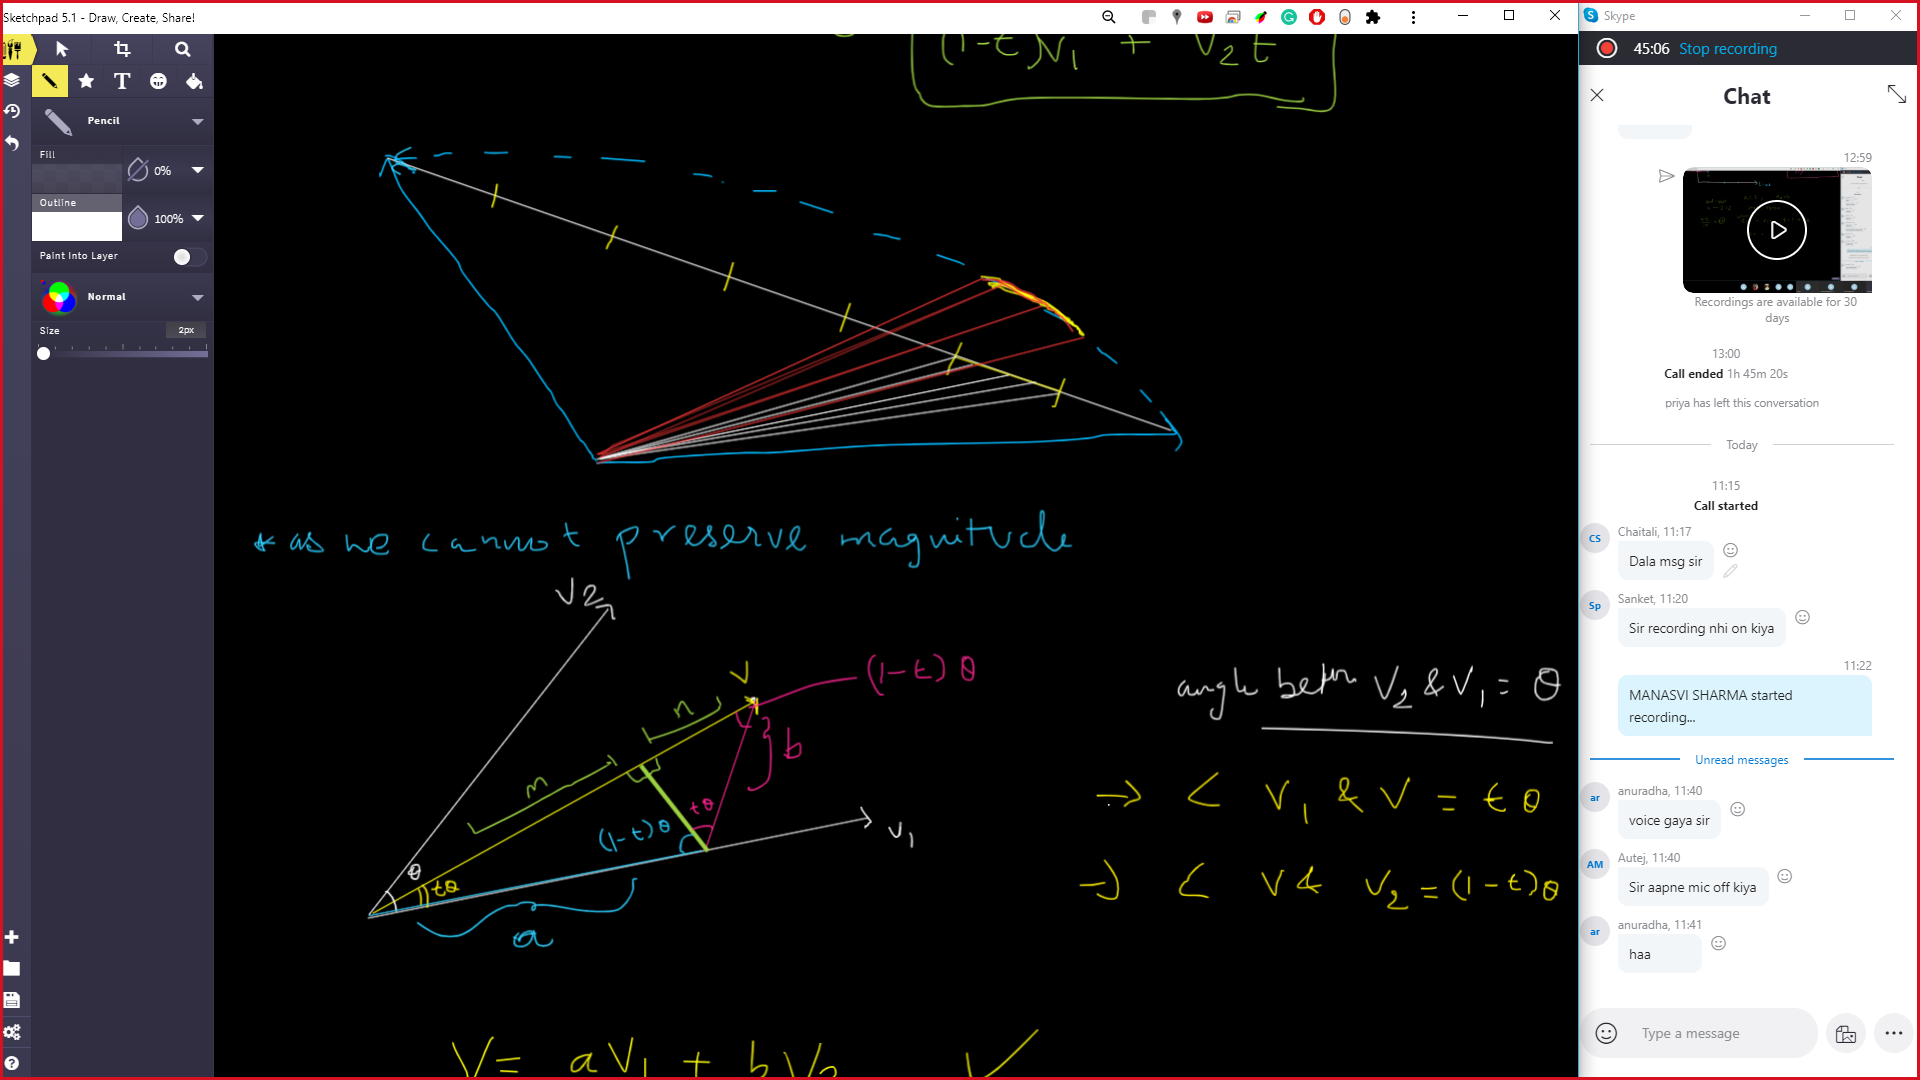 Sketchpad 5.1 - Draw, Create, Share!
Skype
45:06 Stop recording
Chat
Pencil
Fill
0%
Outline
100%
Paint Into Layer
Normal
Size
2px
(1-t)V1 + V2 t
* as we cannot preserve magnitude
V2
V
(1-t) θ
n
b
m
tθ
(1-t) θ
V1
θ
tθ
a
angle betwn V2 & V1 = θ
=> < V1 & V = tθ
=> < V & V2 = (1-t)θ
V = aV1 + bV2
12:59
Recordings are available for 30
days
13:00
Call ended 1h 45m 20s
priya has left this conversation
Today
11:15
Call started
CS
Chaitali, 11:17
Dala msg sir
Sp
Sanket, 11:20
Sir recording nhi on kiya
11:22
MANASVI SHARMA started
recording...
Unread messages
ar
anuradha, 11:40
voice gaya sir
AM
Autej, 11:40
Sir aapne mic off kiya
ar
anuradha, 11:41
haa
Type a message